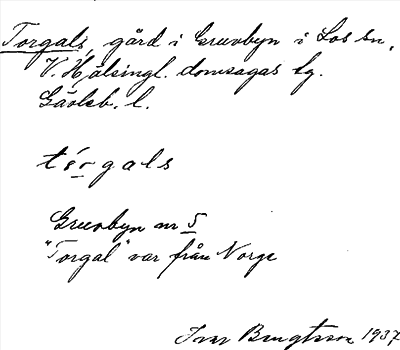 Torgals, gård i Gruvbyn i Los sn,
V. Hälsingl. domsagas tg.
Gävleb. l.
tórgals
Gruvbyn nr 5
"Torgal" var från Norge
Ivar Bengtsson 1937